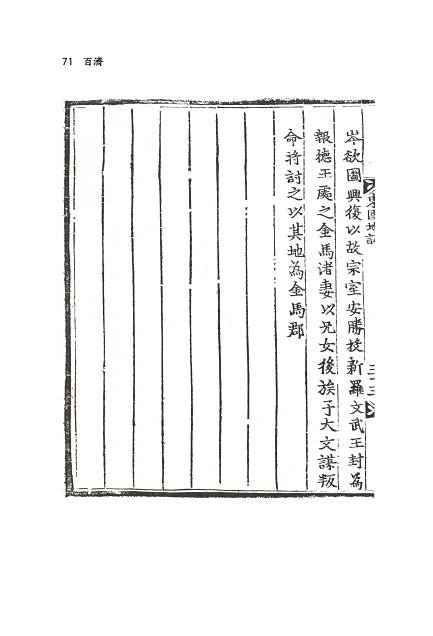 71 百濟
東國地誌
三十三
岑欲圖興復以故宗室安勝投新羅文武王封為
報德王處之金馬渚妻以兄女後族子大文謀叛
命將討之以其地為金馬郡